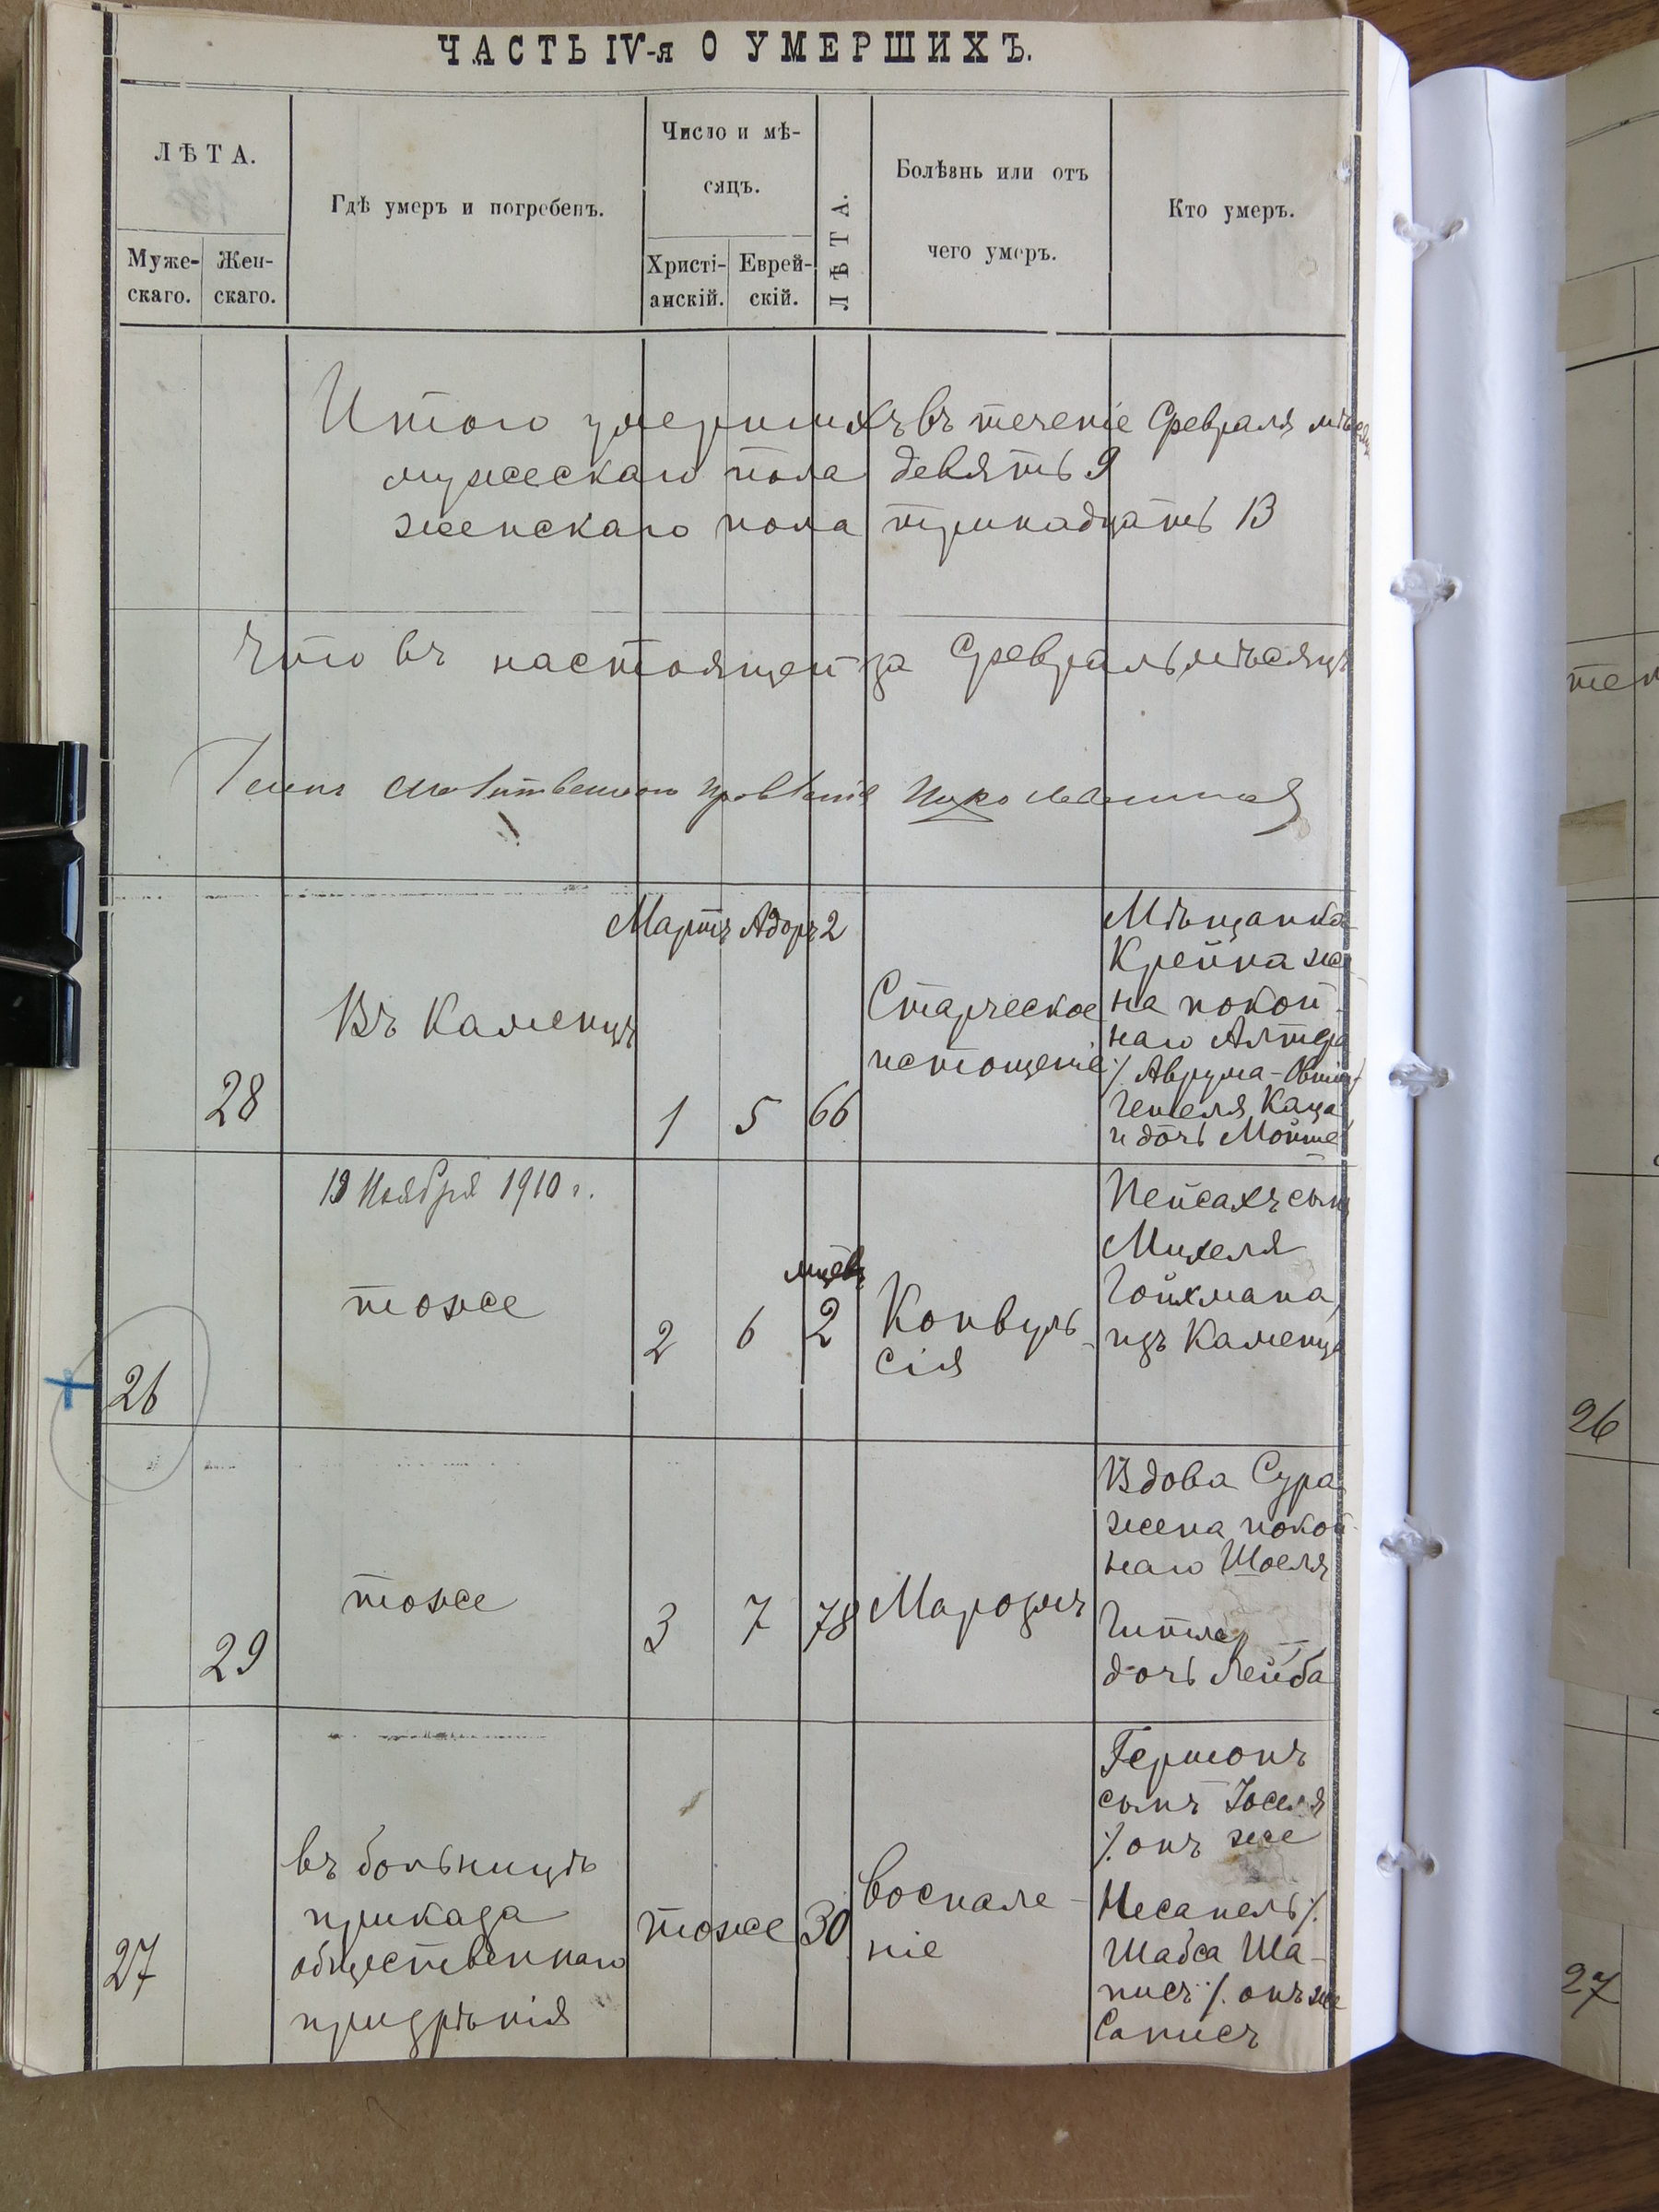 ЧАСТЬ IV-я О УМЕРШИХЪ.
ЛѢТА.
Муже-
скаго.
Жен-
скаго.
Гдѣ умеръ и погребенъ.
Число и мѣ-
сяцъ.
Христі-
анскій.
Еврей-
скій.
ЛѢТА.
Болѣзнь или отъ
чего умеръ.
Кто умеръ.
Итого умершихъ въ теченіе Февраля
мужескаго пола девять 9
женскаго пола тринадцать 13
Что въ настоящей за Февраль мѣсяцъ
Членъ Молитвеннаго правленія
Мартъ Адоръ 2
28
Въ Каменцѣ
1 5 66
Старческое
истощеніе
Мѣщанка
Крейна же-
на покой-
наго Алтера
/. Аврума-
Гешеля Каца
и дочь Мойше
13 Ноября 1910 г.
26
тоже
2 6
мцевъ
2
Конвуль-
сія
Пейсахъ сынъ
Михеля
Гойхмана
изъ Каменца
29
тоже
3 7 78
Маразмъ
Вдова Сура
жена покой-
наго Шоеля
дочь Лейба
27
въ больницѣ
приказа
общественнаго
призрѣнія
тоже 30
воспале-
ніе
Гершонъ
сынъ Іоселя
/. онъ же
Несанель /.
Шабса Ша-
писъ /. онъ же
Саписъ
тен
26
27